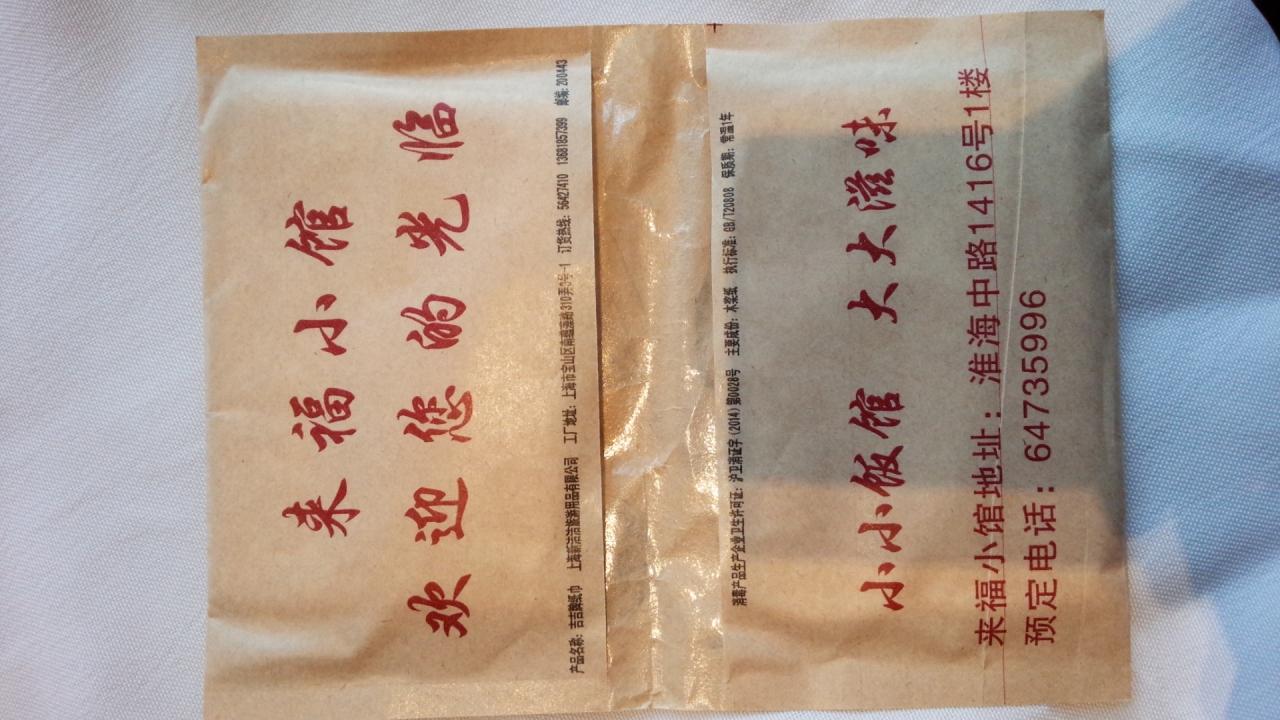 来福小馆
欢迎您的光临
产品名称：吉吉牌纸巾 上海新洁洁旅游用品有限公司 工厂地址：上海市宝山区南蕰藻路310弄3号-1 订货热线：56427410 13681857399 邮编：200443
消毒产品生产企业卫生许可证：沪卫消证字（2014）第0028号 主要成份：木浆纸 执行标准：GB/T20808 保质期：常温1年
小小饭馆 大大滋味
来福小馆地址：淮海中路1416号1楼
预定电话：64735996